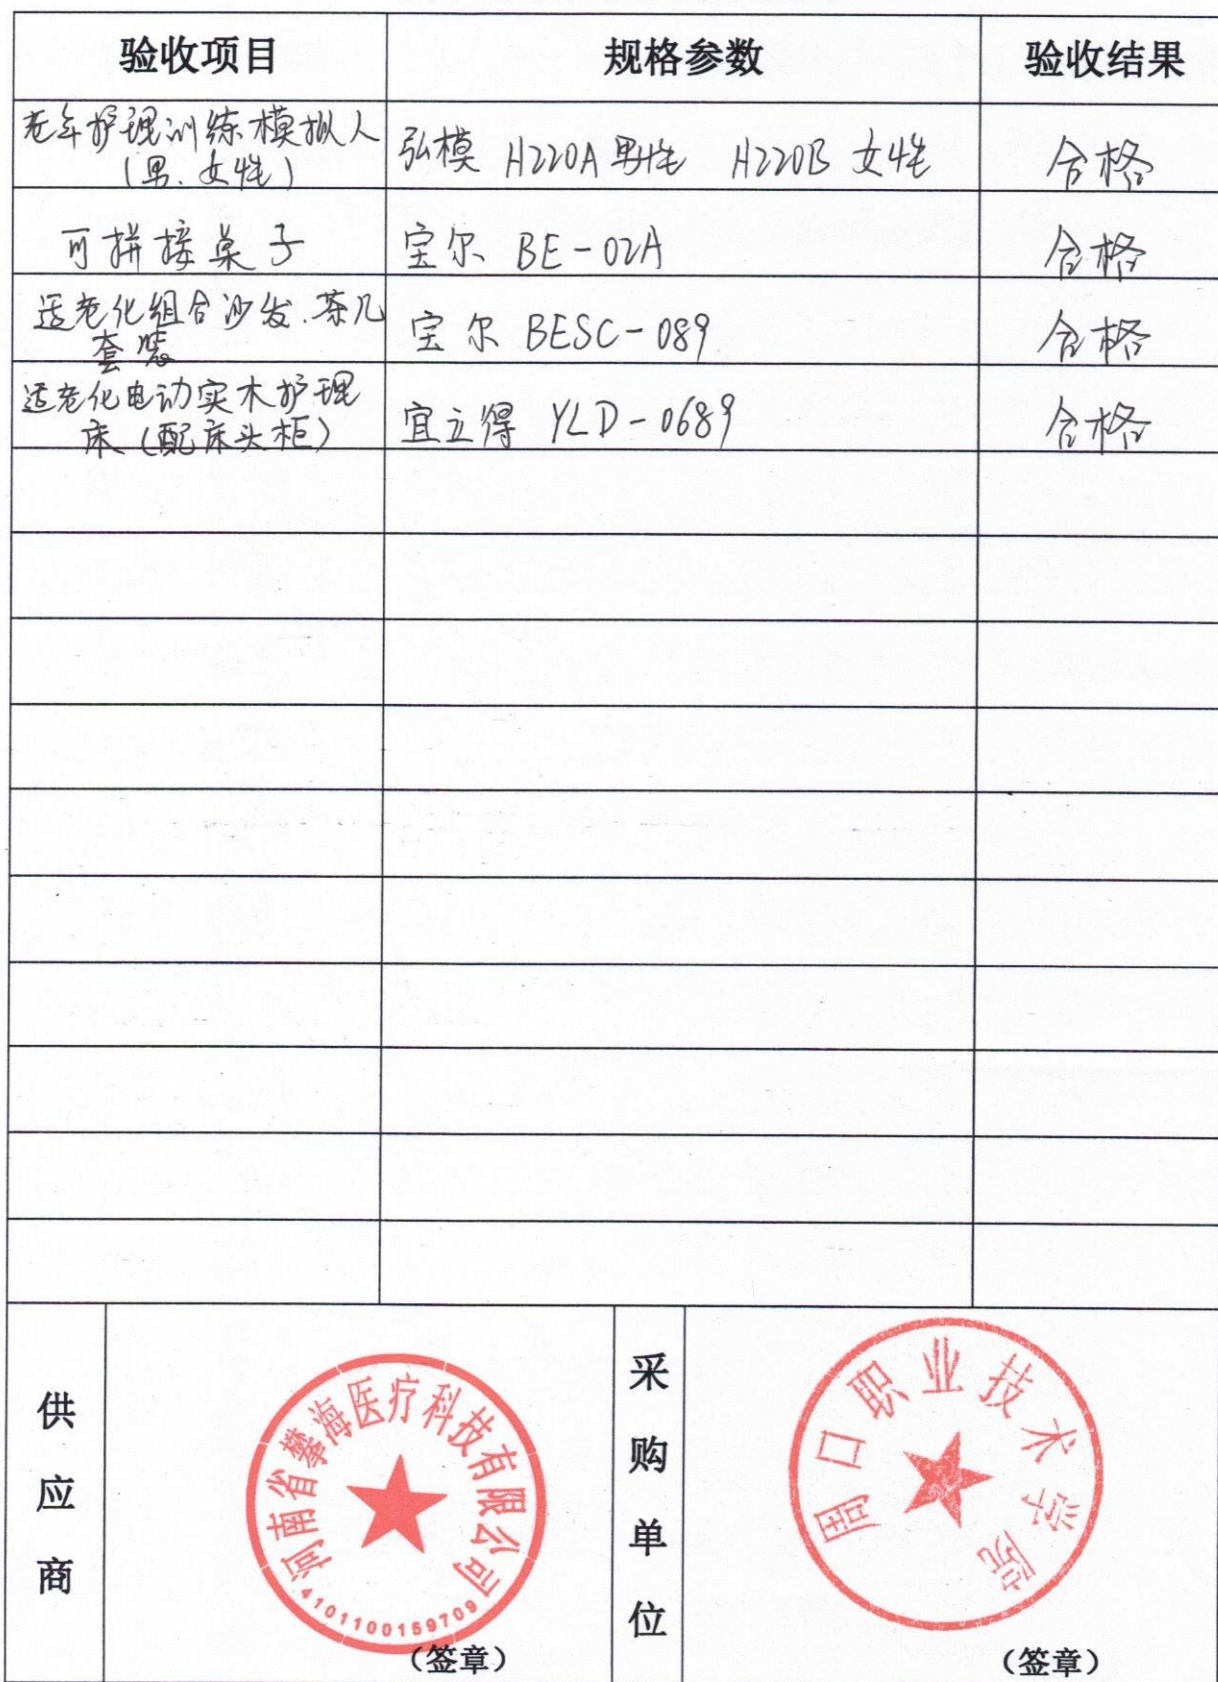 验收项目 规格参数 验收结果
老年护理训练模拟人
(男、女性)
弘模 H220A 男性 H220B 女性 合格
可拼接桌子 宝尔 BE-02A 合格
适老化组合沙发、茶几
套装
宝尔 BESC-089 合格
适老化电动实木护理
床(配床头柜)
宜立得 YLD-0689 合格
供应商
河南省攀海医疗科技有限公司
4101100159709
(签章)
采购单位
周口职业技术学院
(签章)